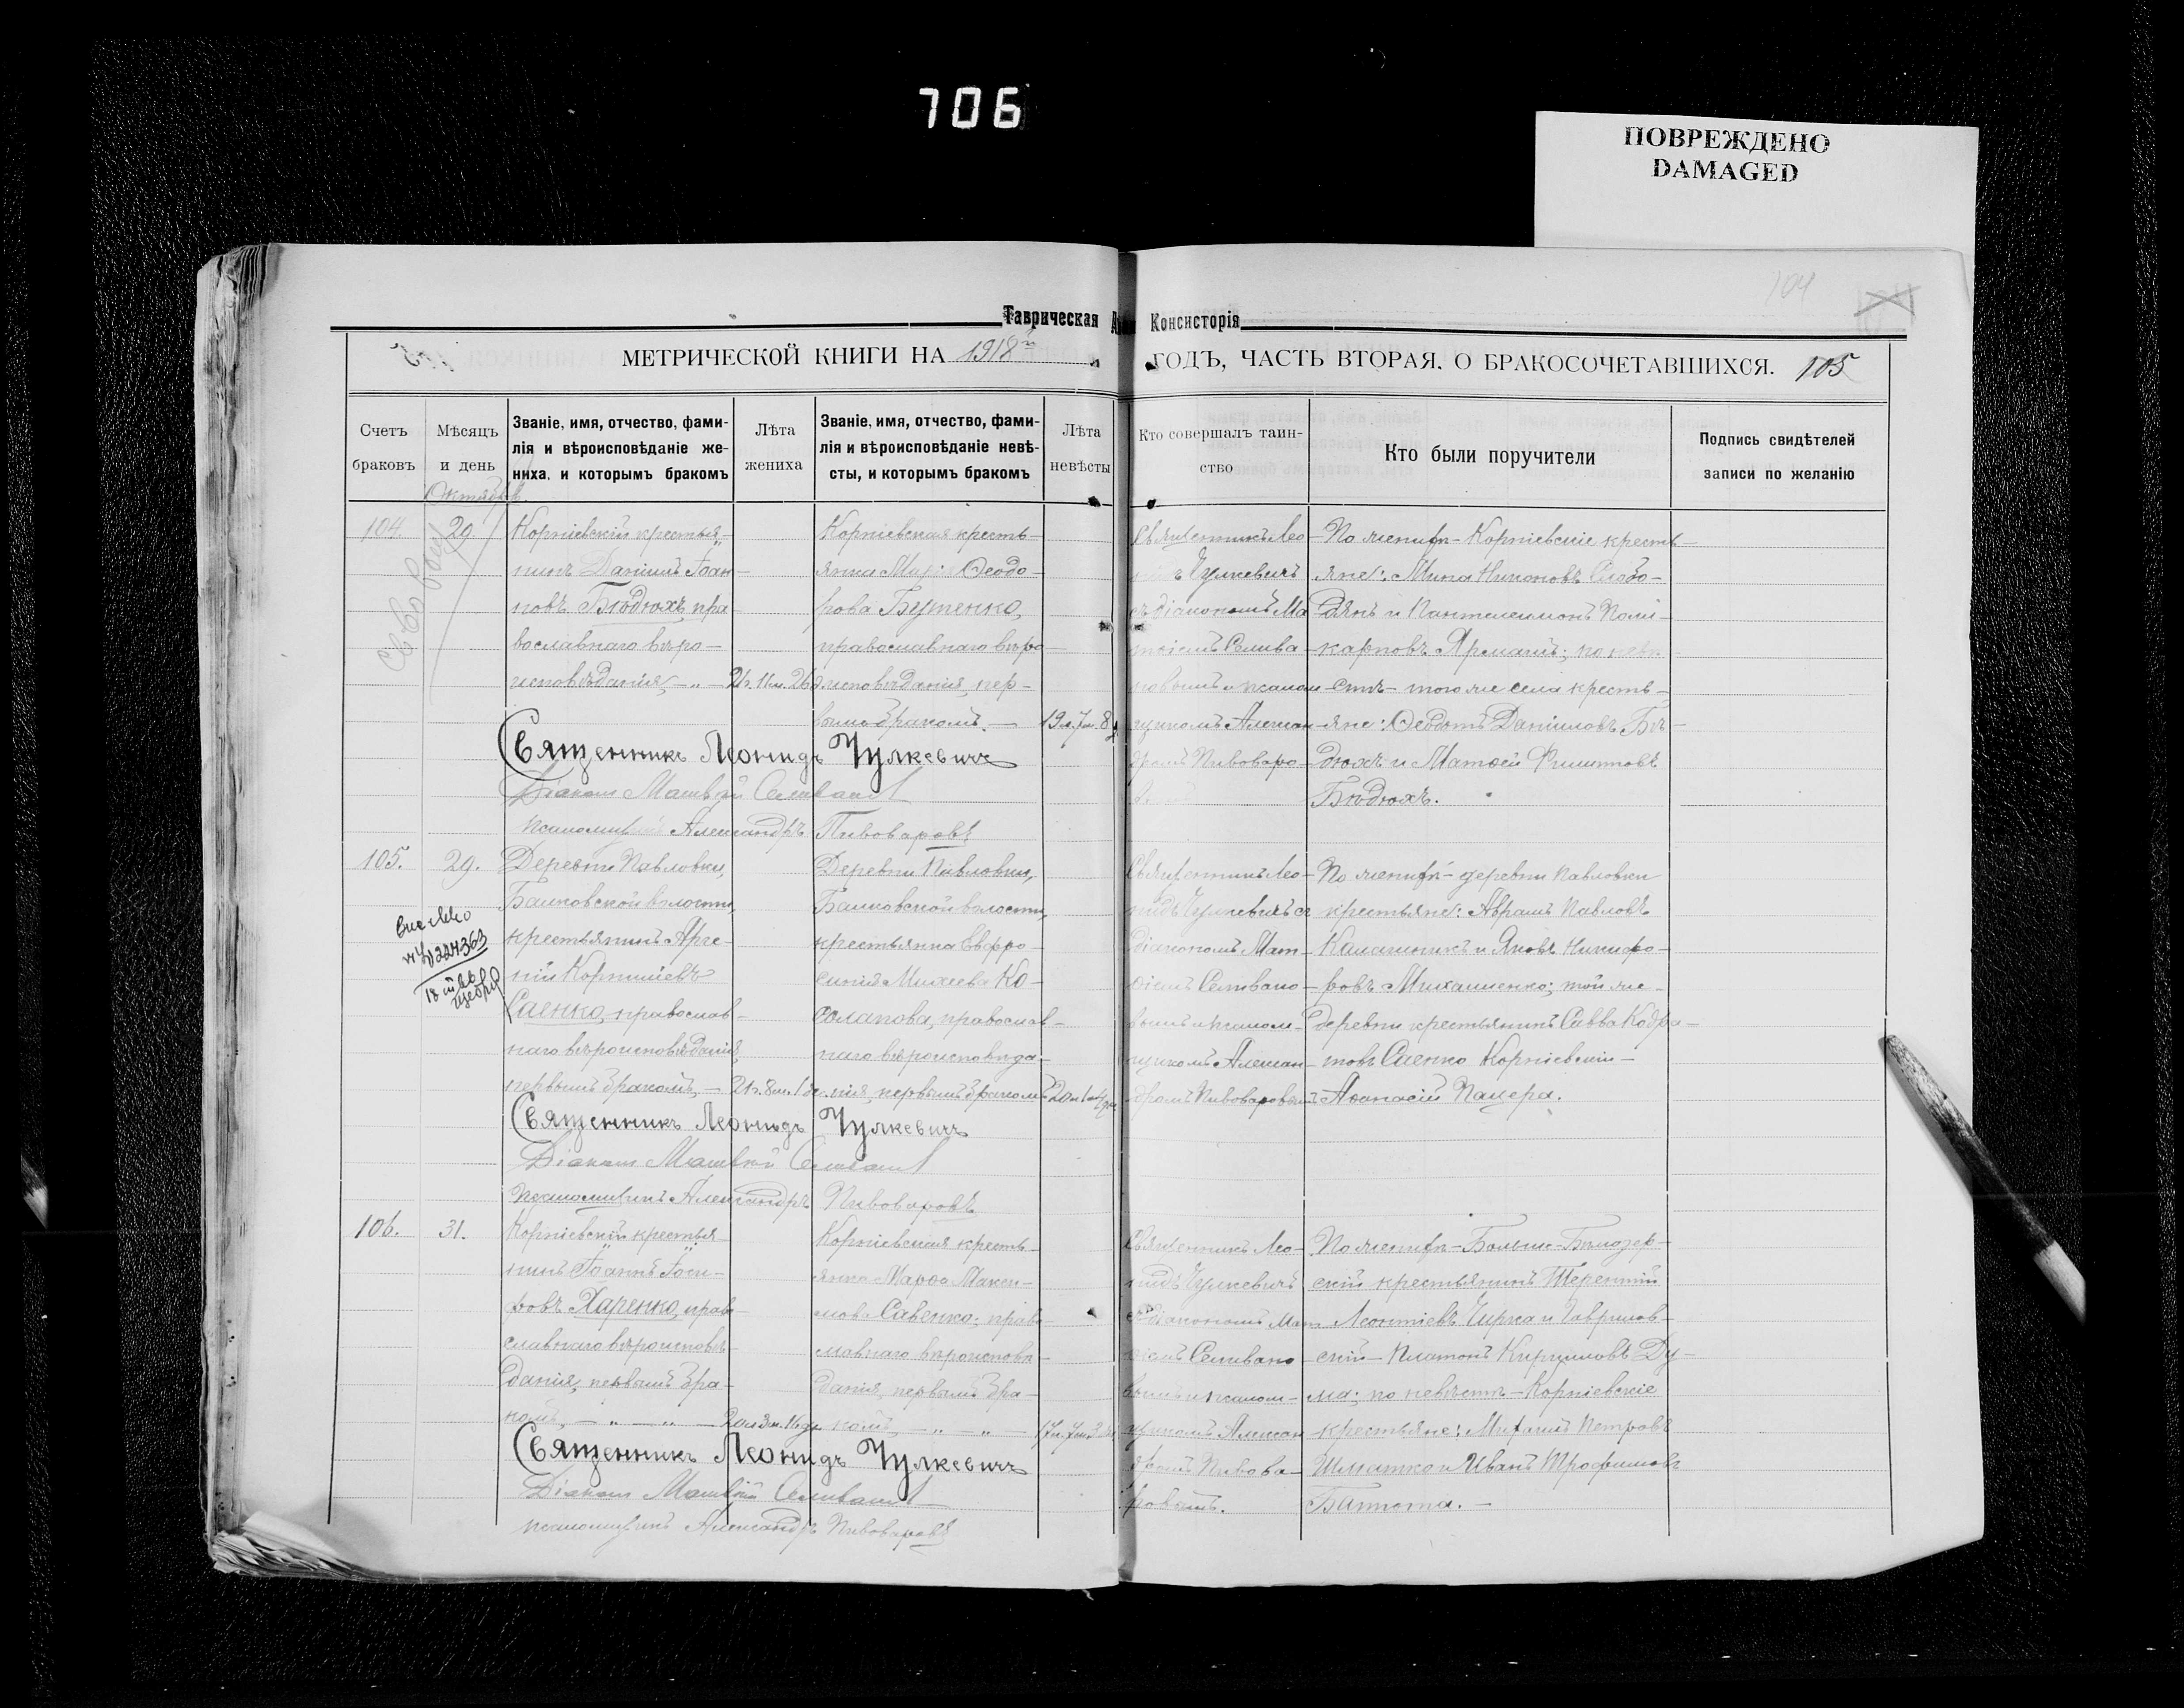 706
ПОВРЕЖДЕНО
DAMAGED
104
Таврическая Консисторія
МЕТРИЧЕСКОЙ КНИГИ НА 1918й ГОДЪ, ЧАСТЬ ВТОРАЯ, О БРАКОСОЧЕТАВШИХСЯ. 105
Счетъ браковъ
Мѣсяцъ и день
Званіе, имя, отчество, фами-
лія и вѣроисповѣданіе же-
ниха, и которымъ бракомъ
Лѣта жениха
Званіе, имя, отчество, фами-
лія и вѣроисповѣданіе невѣ-
сты, и которымъ бракомъ
Лѣта невѣсты
Кто совершалъ таин-
ство
Кто были поручители
Подпись свидѣтелей
записи по желанію
Октябрь
104.
29.
Корніевскій крестья-
нинъ Даніилъ Іоан-
новъ Бѣдюхъ, пра
вославнаго вѣро-
исповѣданія,
21г. 11м. 26д
Корніевская кресть-
янка Марія Ѳеодо-
рова Бутенко,
православнаго вѣро
исповѣданія, пер-
вымъ бракомъ.
19л. 7м. 8
Священникъ Лео-
нидъ Чулкевичъ
съ діакономъ Ма
тѳіемъ Селива-
новымъ и псалом
щикомъ Алексан
дромъ Пивоваро-
По женихѣ - Корніевскіе кресть-
яне: Мина Никоновъ Слобо-
дянъ и Пантелеимонъ Поли-
карповъ Ярмашъ; по невѣ
стѣ - того же села кресть-
яне: Ѳеодотъ Даніиловъ Бѣ-
дюхъ и Матѳей Филипповъ
Бѣдюхъ.
Священникъ Леонидъ Чулкевичъ
Діаконъ Матвѣй Селивановъ
Псаломщикъ Александръ Пивоваровъ
105.
29.
Деревни Павловки,
Балковской волости,
крестьянинъ Арсе-
ній Корниліевъ
Саенко, православ-
наго вѣроисповѣданія,
первымъ бракомъ,
21г. 8м.
Деревни Павловки,
Балковской волости,
крестьянка Евфро-
синія Михеева Ко-
солапова, православ-
наго вѣроисповѣда-
нія, первымъ бракомъ
Священникъ Лео-
нидъ Чулкевичъ съ
діакономъ Мат-
ѳіемъ Селивано-
вымъ и псалом-
щикомъ Алексан-
дромъ Пивоваровымъ
По женихѣ - деревни Павловки
крестьяне: Аврамъ Павловъ
Калашникъ и Яковъ Никифо-
ровъ Михайленко; той же
деревни крестьянинъ Савва Кодра-
товъ Саенко Корніевскій-
Аѳанасій Пацера.
Священникъ Леонидъ Чулкевичъ
Діаконъ Матвѣй Селивановъ
Псаломщикъ Александръ Пивоваровъ
106.
31.
Корніевскій крестья-
нинъ Іоаннъ Іоси-
фовъ Харенко, право-
славнаго вѣроисповѣ-
данія, первымъ бра-
комъ,
20л 3м. 16дн
Корніевская кресть-
янка Марѳа Макси-
мова Савенко; право-
славнаго вѣроисповѣ-
данія, первымъ бра-
комъ,
17л. 7м.
Священникъ Лео-
нидъ Чулкевичъ
съ діакономъ Мат
ѳіемъ Селивано
вымъ и псалом-
щикомъ Алексан
дромъ Пивова-
ровымъ.
По женихѣ - Больше-Бѣлозер-
скій крестьянинъ Терентій
Леонтіевъ Чирка и Гаврилов-
скій - Платонъ Кирилловъ Ду-
ма; по невѣстѣ - Корніевскіе
крестьяне: Михаилъ Петровъ
Шматко и Иванъ Трофимовъ
Баптота.
Священникъ Леонидъ Чулкевичъ
Діаконъ Матвѣй Селивановъ
Псаломщикъ Александръ Пивоваровъ